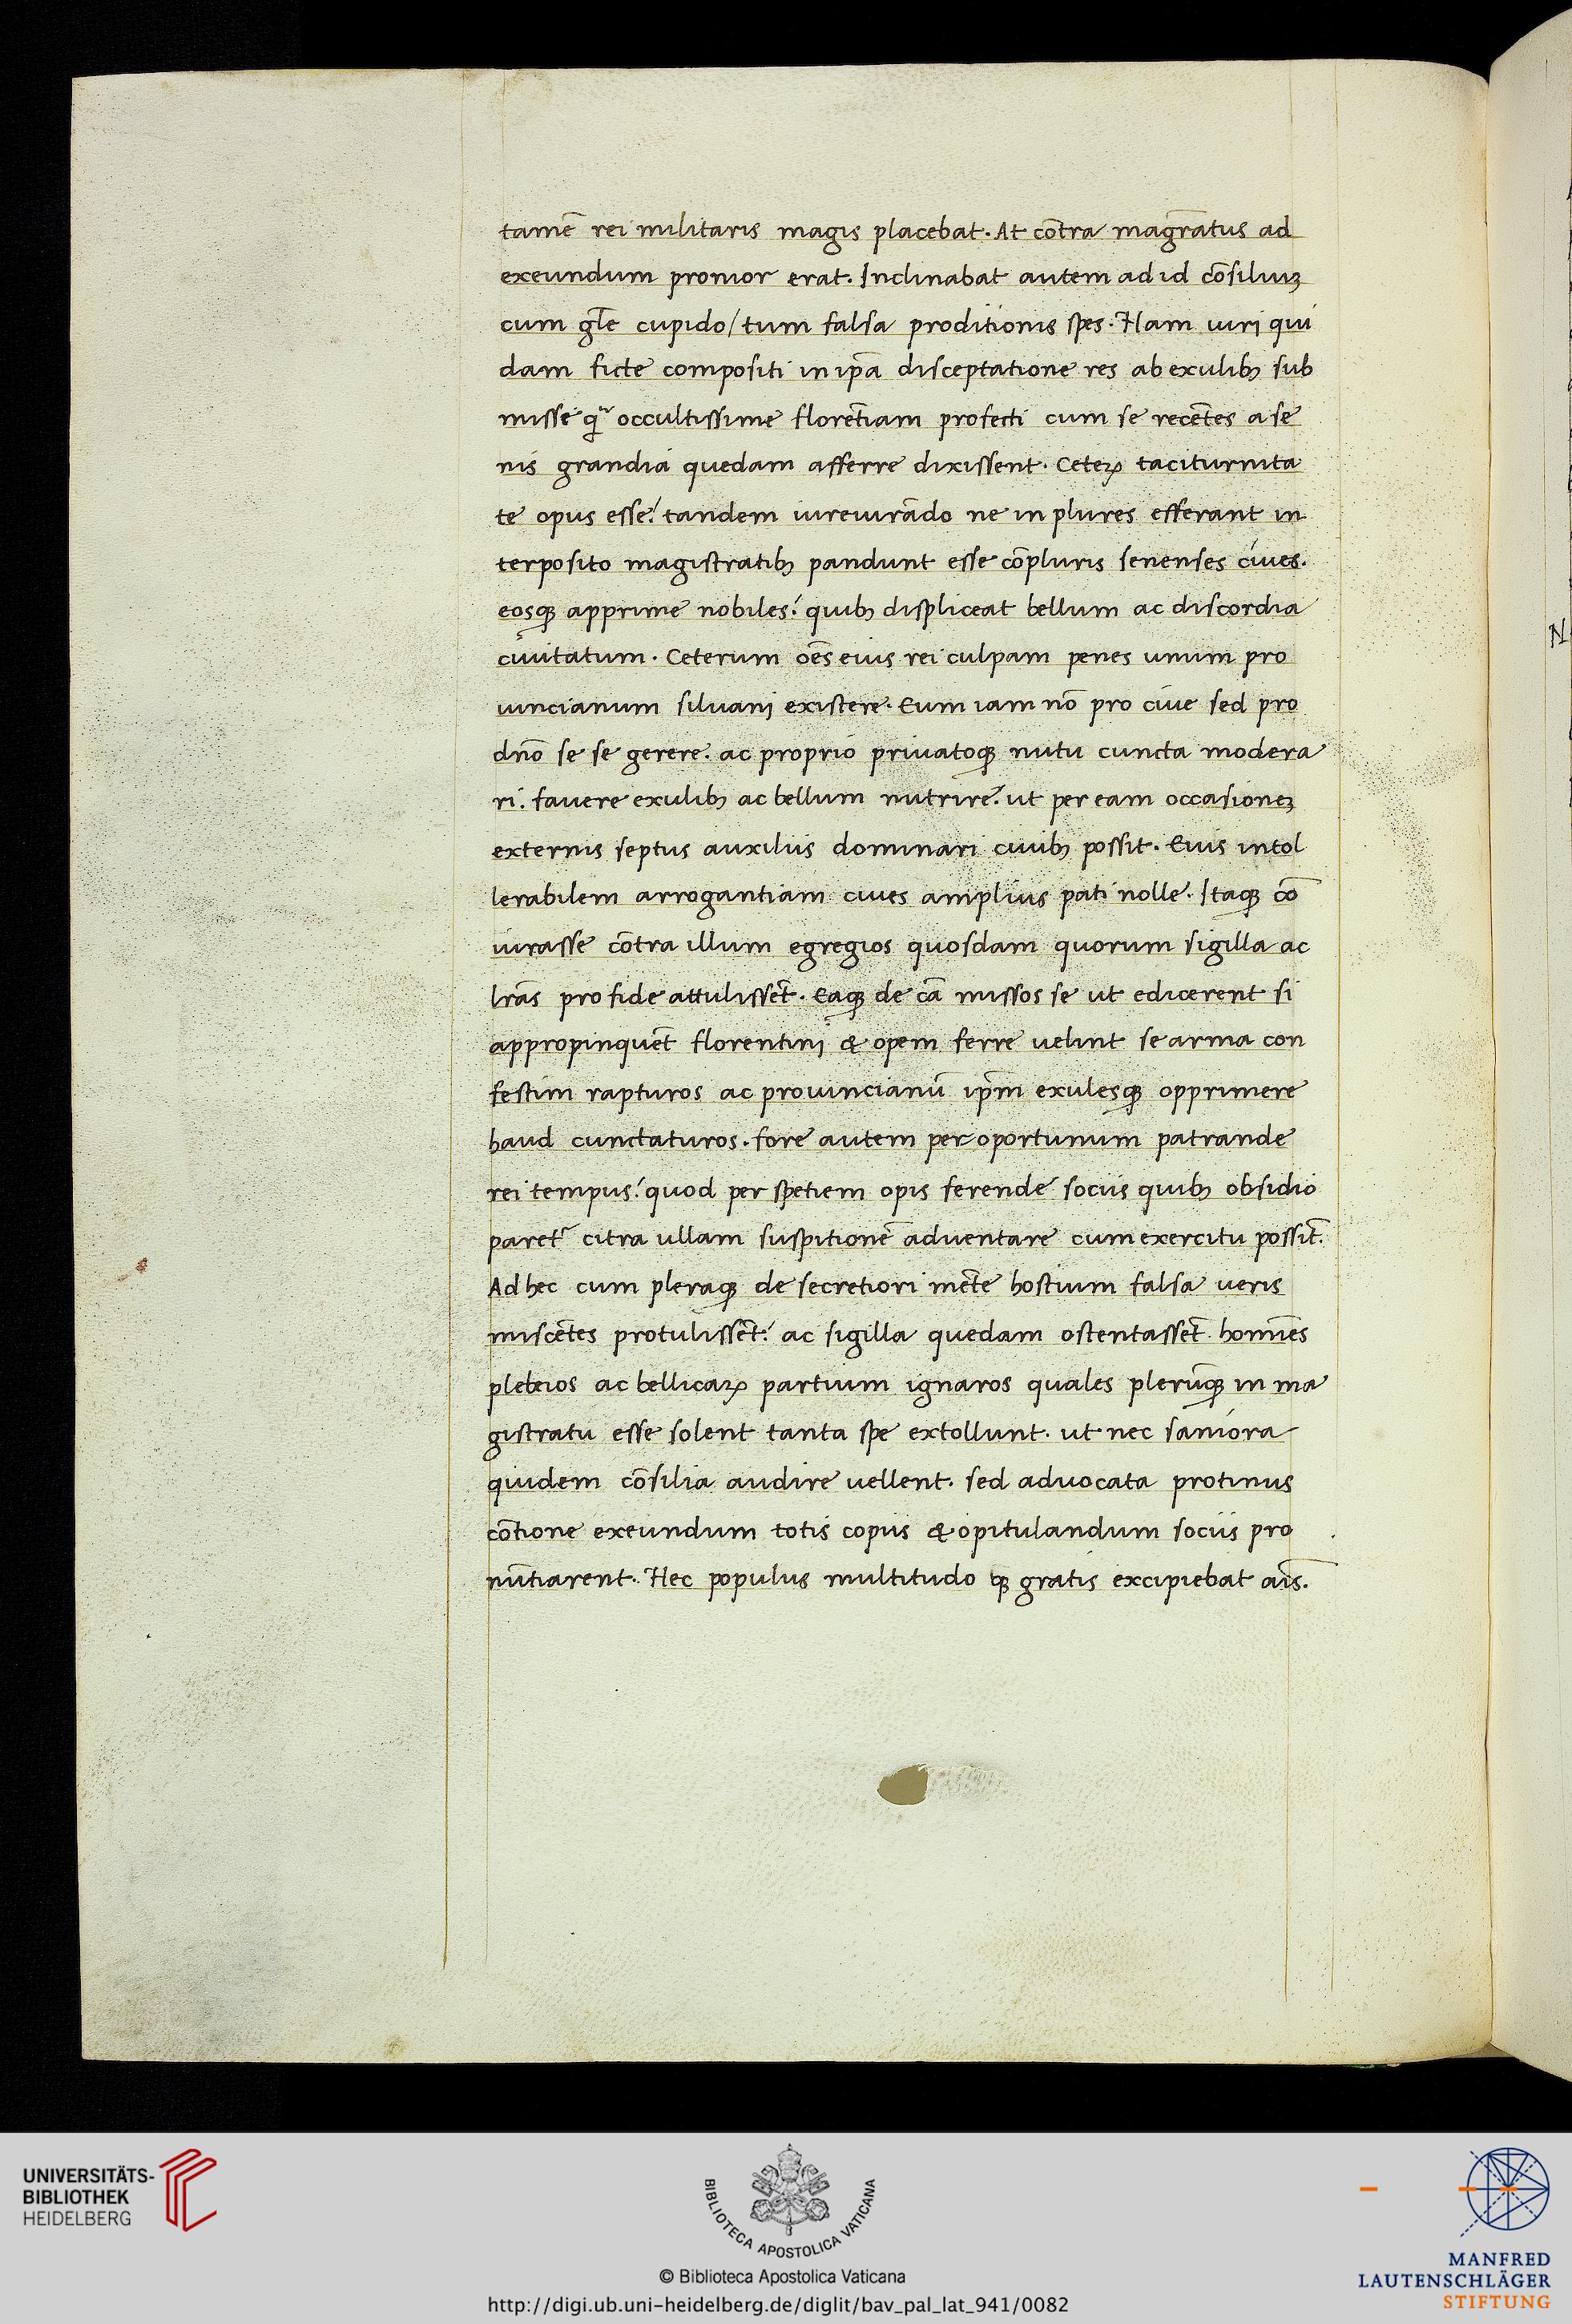 tamē rei militaris magis placebat. At cōtra magr̄atus ad
exeundum pronior erat. Inclinabat autem ad id cōsiliuꝫ
cum gl̄e cupido/ tum falsa proditionis spes. Nam uiri qui
dam ficte compositi in ip̄a disceptatione res ab exulibꝫ sub
misse occultissime florētiam profecti cum se recētes a se
nis grandia quedam afferre dixissent. Ceteꝝ taciturnita
te opus esse: tandem iureiurādo ne in plures efferant in
terposito magistratibꝫ pandunt esse cōpluris senenses ciues.
eosqꝫ apprime nobiles: quibꝫ displiceat bellum ac discordia
ciuitatum. Ceterum oēs eius rei culpam penes unum pro
uincianum siluani existere. Eum iam nō pro ciue sed pro
dn̄o se se gerere. ac proprio priuatoqꝫ nutu cuncta modera
ri. fauere exulibꝫ ac bellum nutrire. ut per eam occasioneꝫ
externis septus auxiliis dominari ciuibꝫ possit. Eius intol
lerabilem arrogantiam ciues amplius pati nolle. Itaqꝫ cō
iurasse cōtra illum egregios quosdam quorum sigilla ac
lr̄as pro fide attulissēt. Eaqꝫ de cā missos se ut edicerent si
appropinquēt florentini & opem ferre uelint se arma con
festim rapturos ac prouincianū ip̄m exulesqꝫ opprimere
haud cunctaturos. fore autem per oportunum patrande
rei tempus: quod per spetiem opis ferende sociis quibꝫ obsidio
paretʳ citra ullam suspitionē aduentare cum exercitu possīt.
Ad hec cum pleraqꝫ de secretiori mēte hostium falsa ueris
miscētes protulissēt: ac sigilla quedam ostentassēt. homīes
plebeios ac bellicaꝝ partium ignaros quales plerūqꝫ in ma
gistratu esse solent tanta spe extollunt. ut nec saniora
quidem cōsilia audire uellent. sed aduocata protinus
cōtione exeundum totis copiis & opitulandum sociis pro
nūtiarent. Hec populus multitudo qꝫ gratis excipiebat aīs.
N
UNIVERSITÄTS-
BIBLIOTHEK
HEIDELBERG
BIBLIOTECA APOSTOLICA VATICANA
© Biblioteca Apostolica Vaticana
http://digi.ub.uni-heidelberg.de/diglit/bav_pal_lat_941/0082
MANFRED
LAUTENSCHLÄGER
STIFTUNG